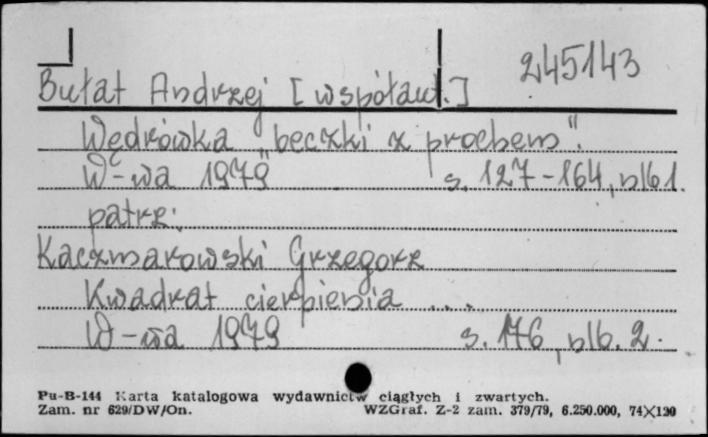 245143
Bułat Andrzej [współaut.]
Wędrówka "beczki z prochem".
W-wa 1979 s. 127-164, nlb 1.
patrz:
Kaczmarowski Grzegorz
Kwadrat cierpienia ...
W-wa 1979 s. 176, nlb. 2.
Pu-B-144 Karta katalogowa wydawnictw ciągłych i zwartych.
Zam. nr 629/DW/On. WZGraf. Z-2 zam. 379/79, 6.250.000, 74X120